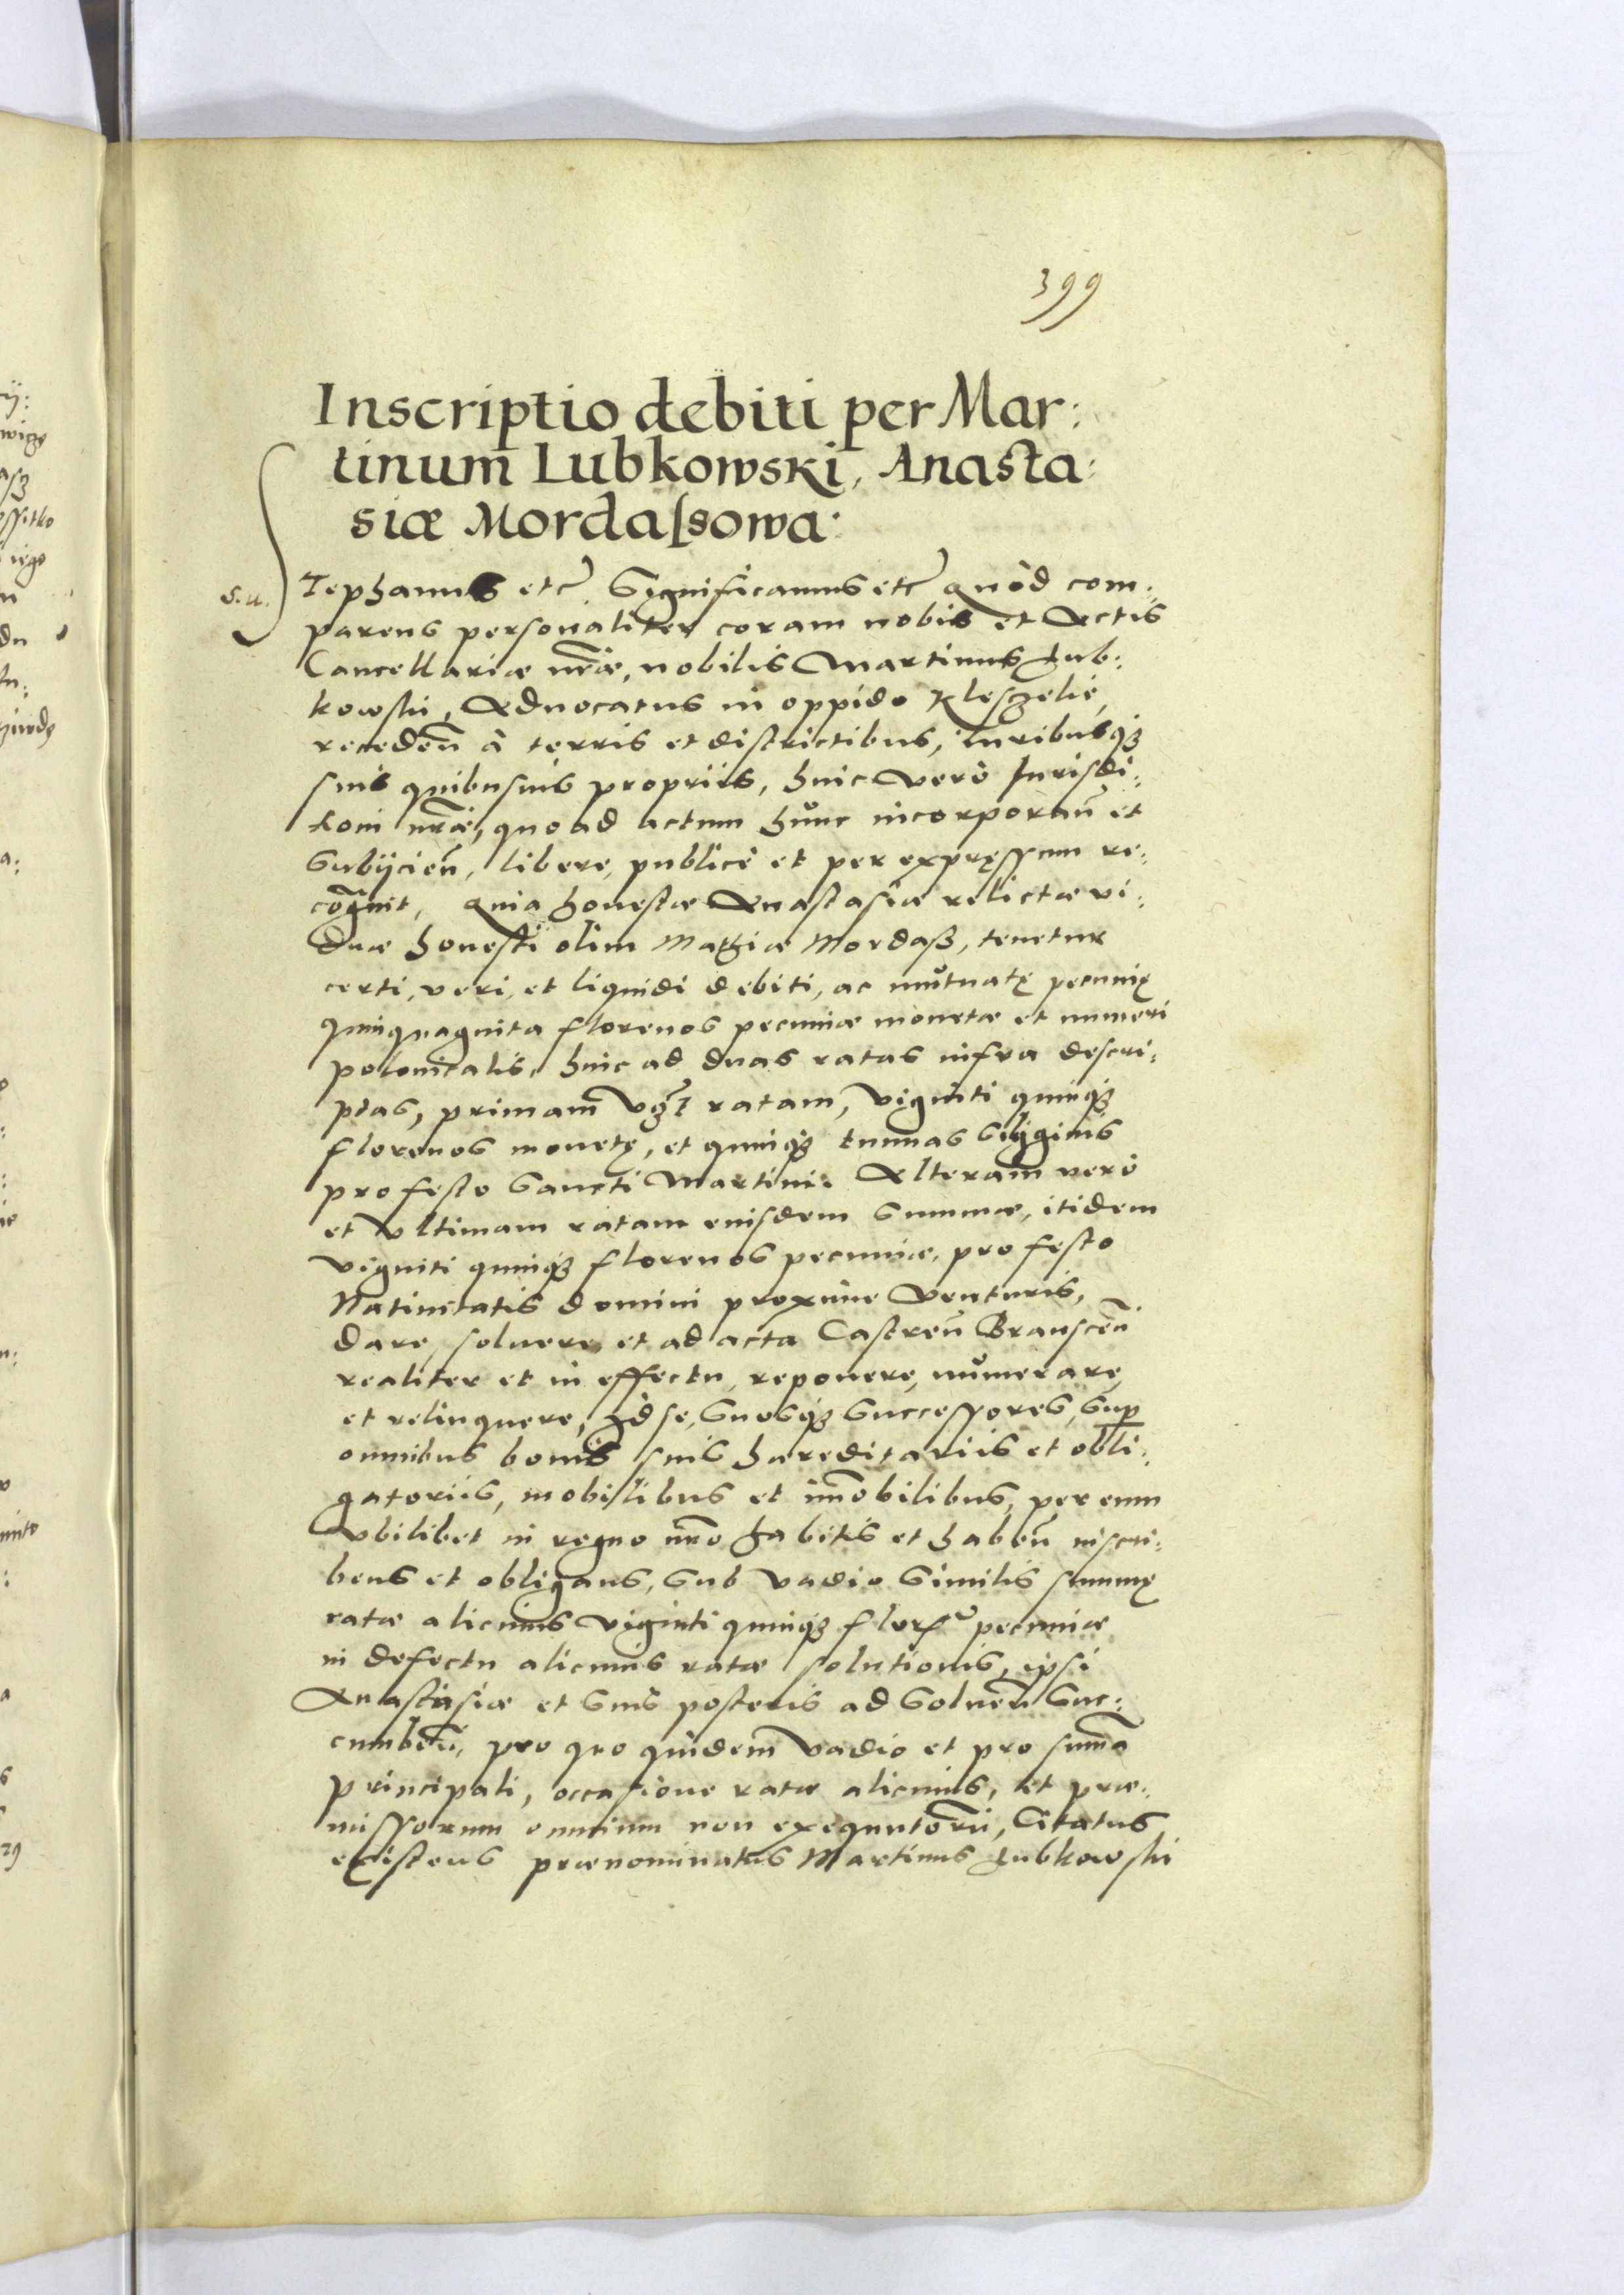 399
Inscriptio debiti per Mar:
tinum Lubkowski, Anasta:
siæ Mordaſsowa:
s. u.
STephanus etc̃ Significamus etc̃ Quòd com:
parens personaliter coram nobis et Actis
Cancellariæ nr̃æ, nobilis Martinus Lub:
kowski, Aduocatus in oppido Kleszelie,
receden̄ à terris et districtibus, iuribusq₃
suis quibusuis propriis, huic verò Jurisdi:
tioni nr̃æ, quo ad actum hunc incorporan̄ et
Subijcien̄, libere, publicè et per expręssum re:
cog̃nit, Quia honestæ Anastasiæ relictæ vi:
duæ honesti olim Mathiæ Mordaß, tenetur
certi, veri, et liquidi debiti, ac mutuatę pecunię
quinquaginta florenos pecuniæ monetæ et numeri
polonicalis, hinc ad duas ratas infra descri:
ptas, primam vz̃t ratam, viginti quinq₃
florenos monetę, et quinq₃ tunnas Siliginis
pro festo Sancti Martini. Alteram verò
et vltimam ratam eiusdem Summæ, itidem
viginti quinq₃ florenos pecuniæ, pro festo
Natiuitatis Domini proxime venturis,
dare, soluere, et ad acta Castren̄ Branscen̄
realiter et in effectu, reponere, numerare,
et relinquere, Id se, Suosq₃ Successores, Sup
omnibus bonis suis hæreditariis et obli:
gatoriis, mobilibus et im̃obilibus, per eum
vbilibet in regno nr̃o habitis et haben̄ inscri:
bens et obligans, Sub vadio Similis summę
ratæ alicuius viginti quinq₃ flor̃ pecuniæ
in defectu alicuius ratæ solutionis, ipsi
Anastasiæ et Suis posteris ad Soluen̄ Suc:
cumben̄, pro quo quidem vadio et pro sum̃a
principali, occasione ratæ alicuius, et præ:
missorum omnium non exequutorū, Citatus
existens prænominatus Martinus Lubkowski